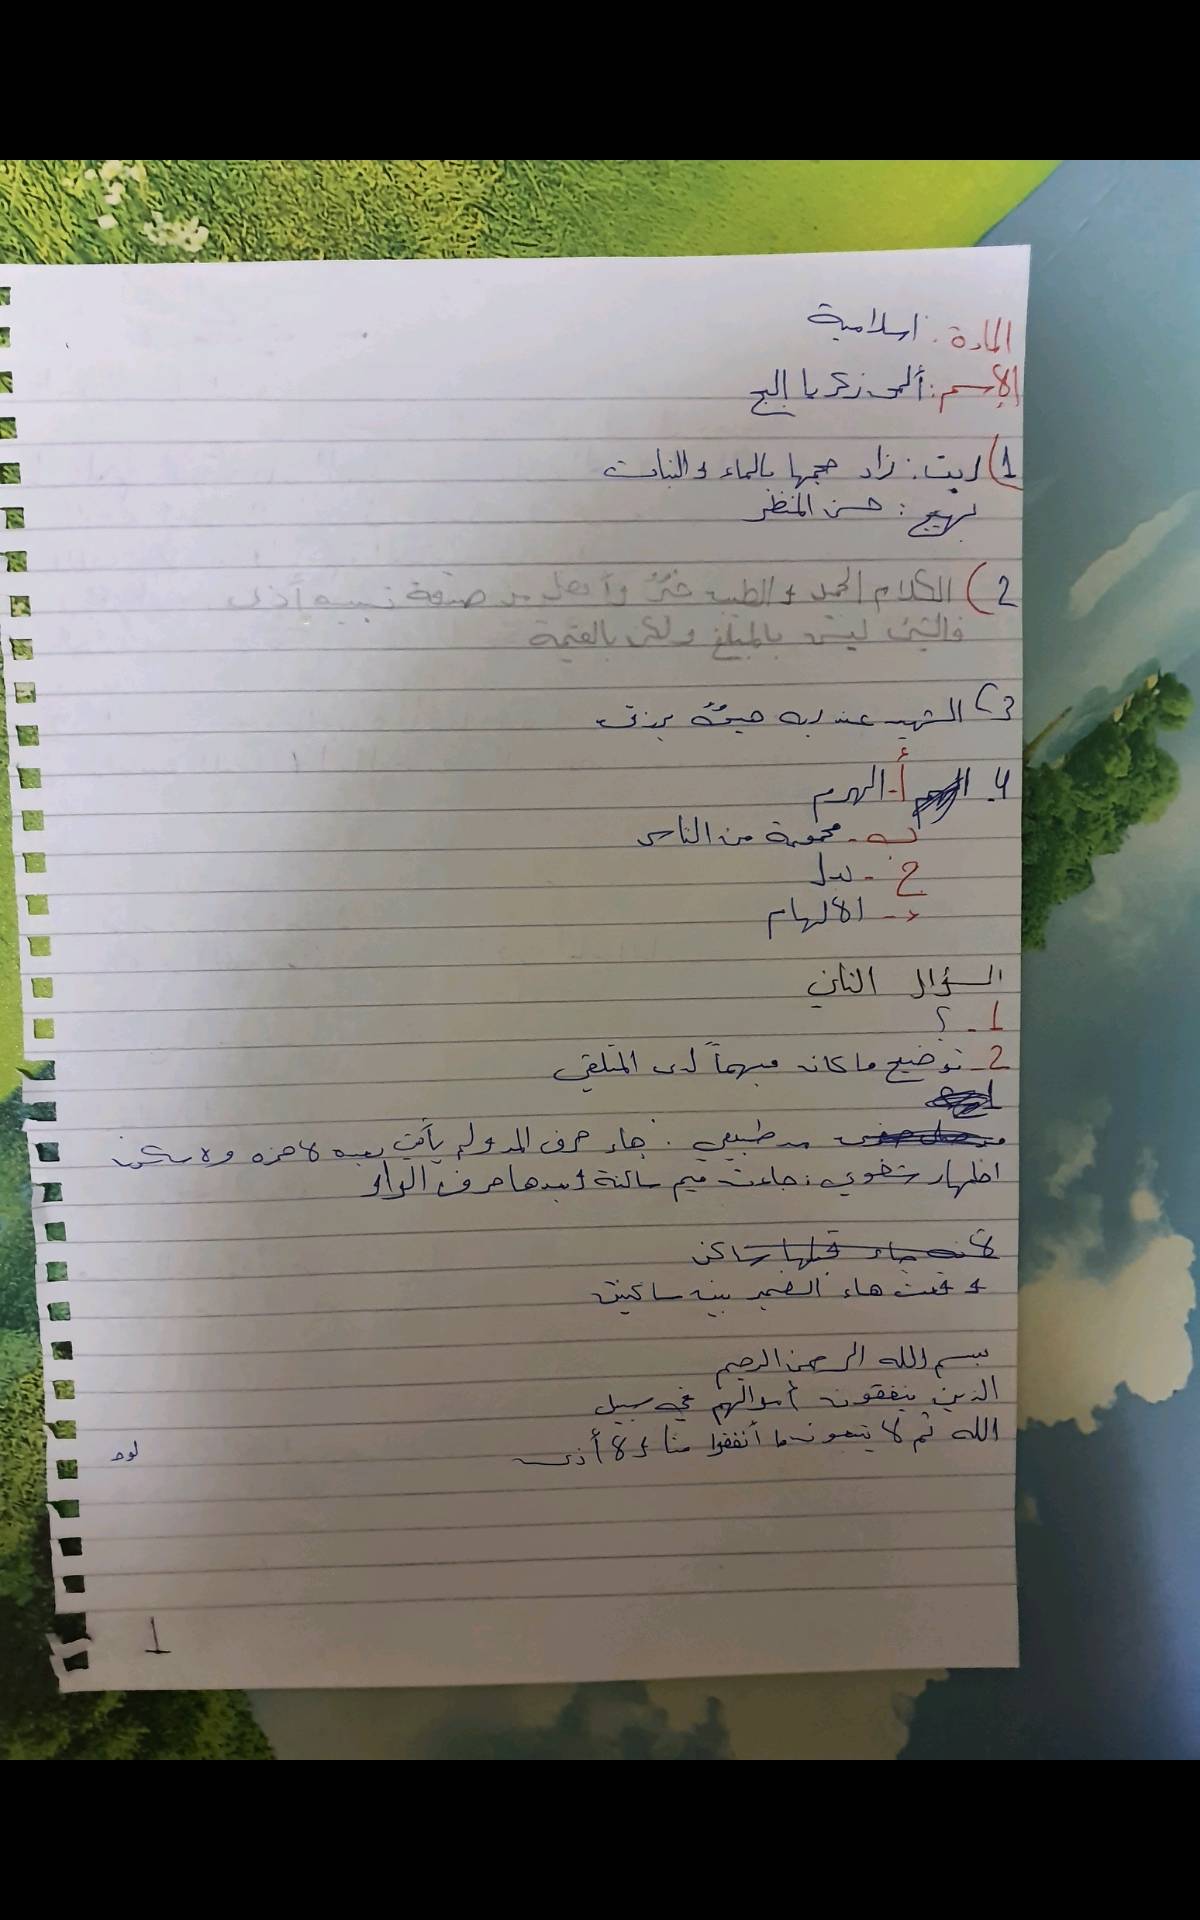 المادة: اسلامية
الإسم: ألمى زكريا البج
1) ربت: زاد حجمها بالماء والنبات
بهيج: حسن المنظر
2) الكلام الجميل والطيب خيرٌ وأفضل من صدقة تتبعها أذى
فالشيء ليس بالمبلغ ولكن بالقيمة
3) الشهيد عند ربه حيٌ يرزق
4. أ- الهرم
ب- مجموعة من الناس
ج - بدل
د - الالهام
السؤال الثاني
1 - ؟
2 - توضيح ما كان مبهماً لدى المتلقي
مد طبيعي: جاء حرف المد ولم يأتي بعده لا همزه ولا سكون
اظهار شفوي: جاءت ميم ساكنة وبعدها حرف الواو
لأنه جاء قبلها ساكن
وقعت هاء الضمير بين ساكنين
بسم الله الرحمن الرحيم
الذين ينفقون أموالهم في سبيل
الله ثم لا يتبعون ما أنفقوا مناً ولا أذى
1